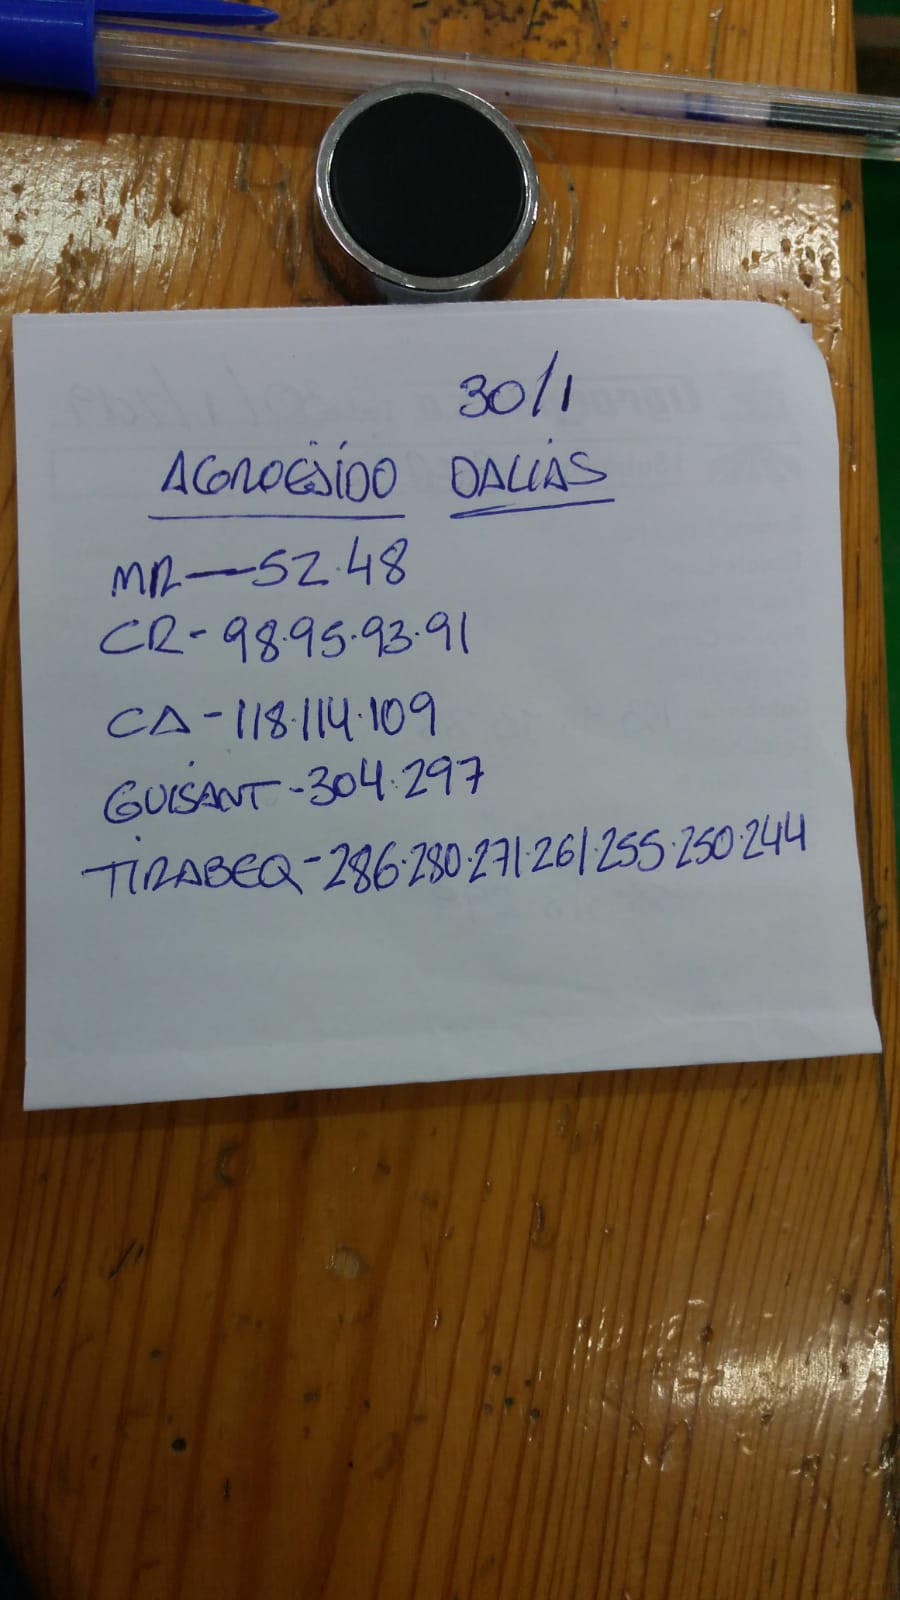 30/1
AGROEJIDO DALIAS
MR—52.48
CR-98.95.93.91
CA-118.114.109
GUISANT-304.297
TIRABEQ-286.280.271.261.255.250.244